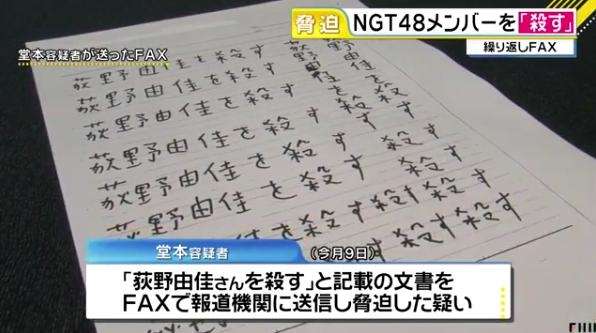 脅迫 NGT48メンバーを「殺す」
繰り返しFAX
堂本容疑者が送ったFAX
荻野由佳を殺す 荻野由佳を殺す
荻野由佳を殺す
荻野由佳を殺す
荻野由佳を殺す
荻野由佳を殺す
荻野由佳を殺す
殺す殺す殺す殺す
堂本容疑者 (今月9日)
「荻野由佳さんを殺す」と記載の文書を
FAXで報道機関に送信し脅迫した疑い